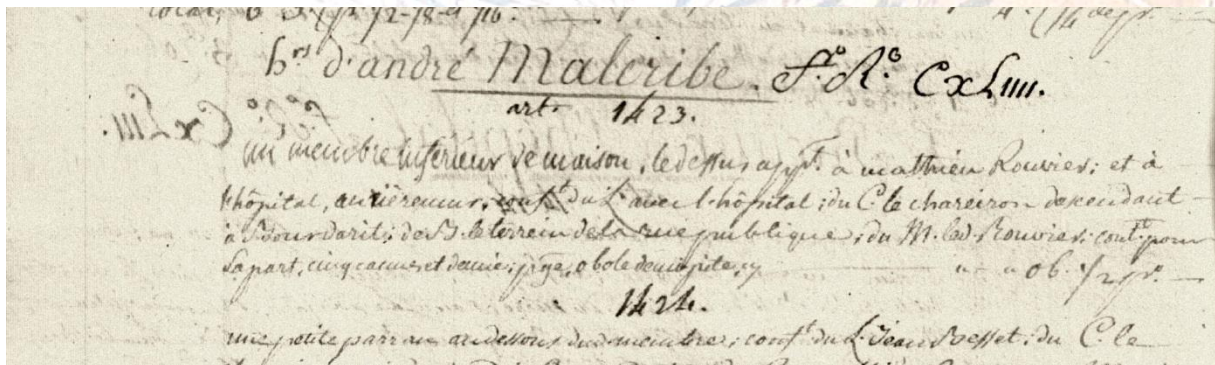 hrs d'andré Malcribe. f.o R.o CxLiiii.
art. 1423.
un membre inferieur de maison, le dessus appt. à mathieu Rouvier; et à
l'hôpital, conft. du L. avec l'hôpital; du C. le chareiron descendant
à de B. le terrein de la rue publique; du M. led. Rouvier. cont. pour
sa part, cinq cannes et demie; obole demi pite, cy " - " ob. 1/2 pe.
1424.
une petite parran au dessous dud. membre; conft. du L. Jean Besset; du C. le